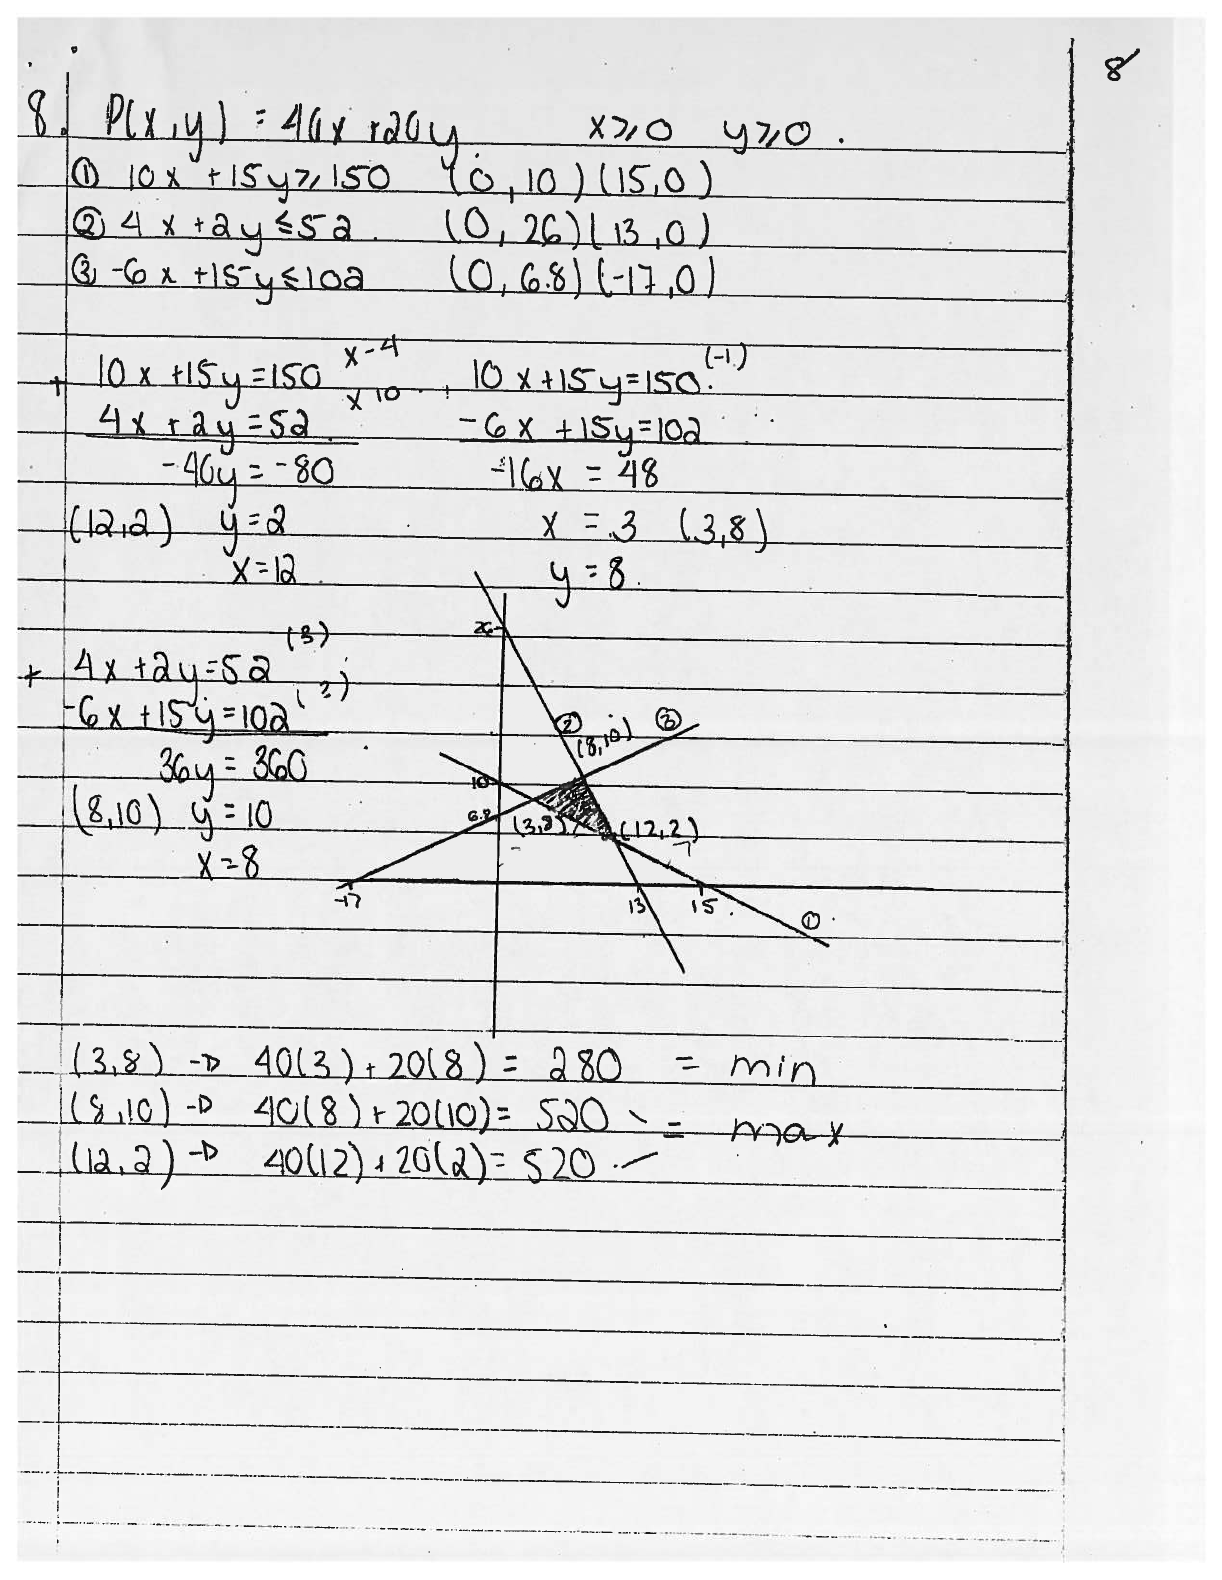 8
8. P(x,y) = 40x +20y x⩾0 y⩾0.
① 10x +15y⩾150 (0,10) (15,0)
② 4x +2y≤52. (0,26) (13,0)
③ -6x +15y≤102 (0,6.8) (-17,0)
10x +15y=150 x-4
+ 4x +2y=52 x10
-40y = -80
(12,2) y=2
x=12
+ 10x+15y=150 (-1)
-6x +15y=102
-16x = 48
x = 3 (3,8)
y = 8
+ 4x +2y=52 (3)
-6x +15y=102 (2)
36y = 360
(8,10) y = 10
x=8
26
② (8,10) ③
10
6.8 (3,8) (12,2)
-17 13 15
①
(3,8) → 40(3)+20(8) = 280 = min
(8,10) → 40(8)+20(10) = 520 = max
(12,2) → 40(12)+20(2) = 520